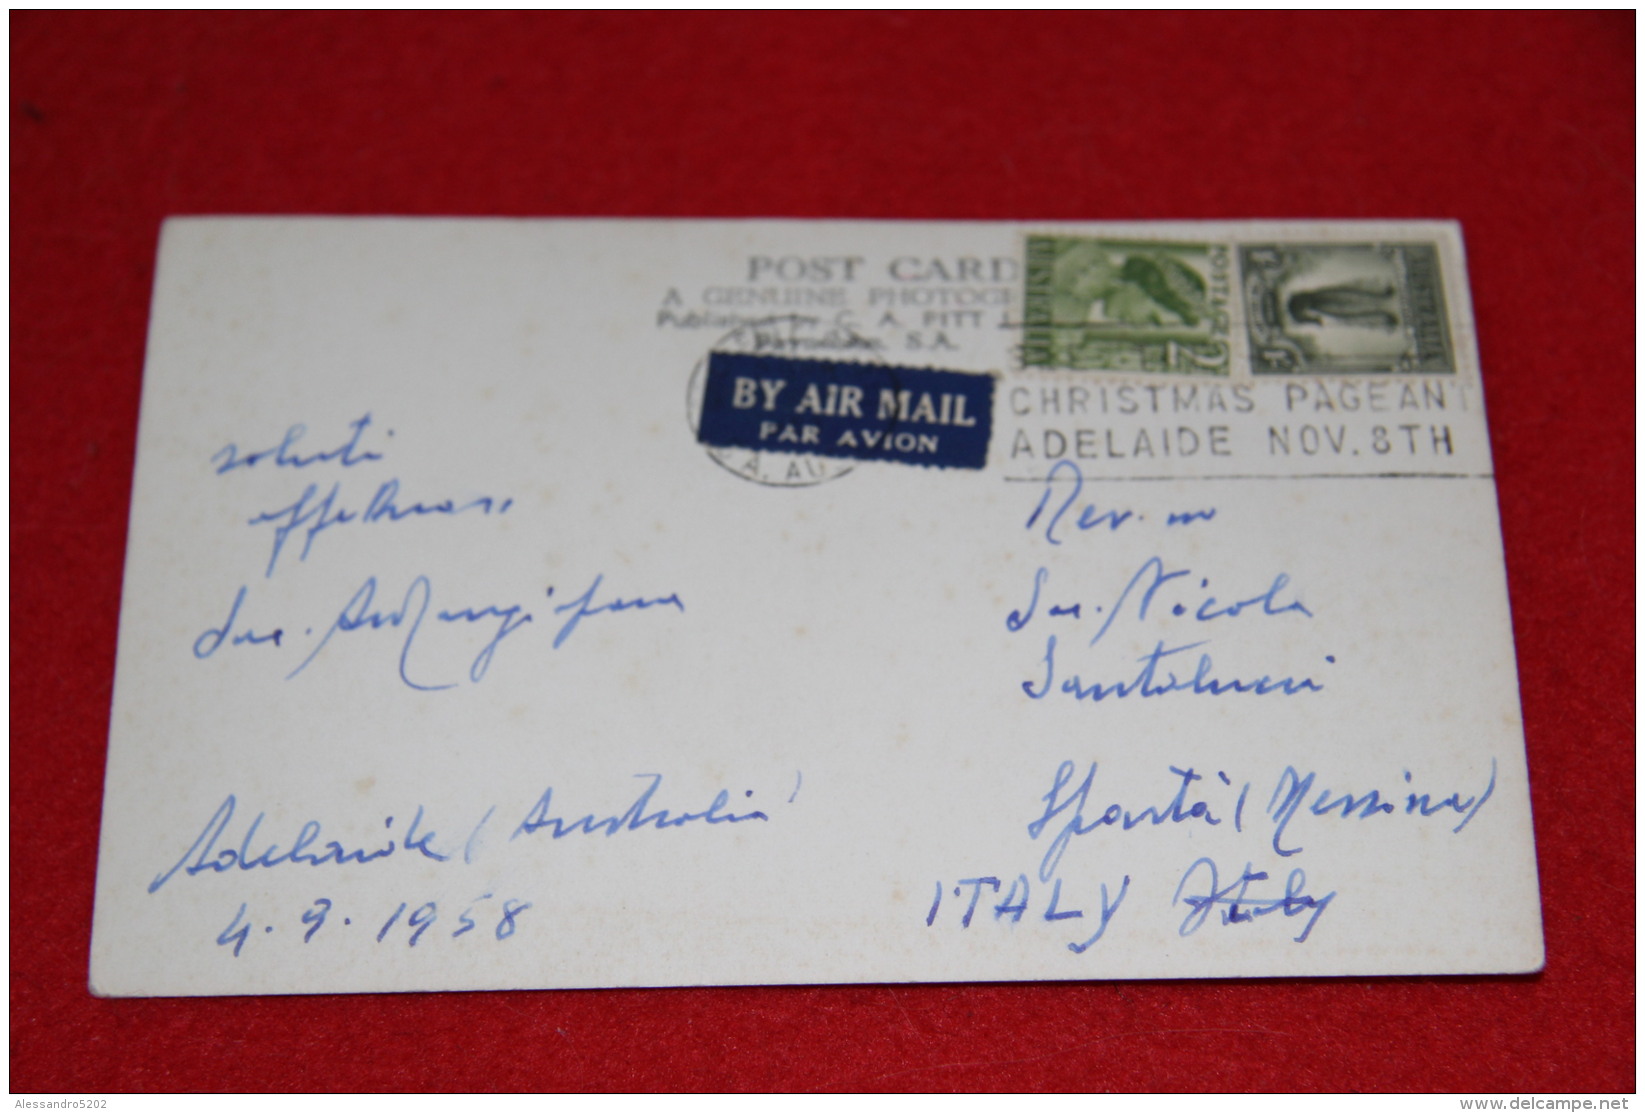 POST CARD
A GENUINE PHOTOG
Published by C. A. PITT
S.A.
AUSTRALIA
POSTAGE
2
AUSTRALIA
BY AIR MAIL
PAR AVION
CHRISTMAS PAGEANT
ADELAIDE NOV. 8TH
.A. AU
saluti
affettuosi
Sac.
Adelaide (Australia)
4.9.1958
Rev.mo
Sac. Nicola
Santolucci
Spartà (Messina)
ITALY Italy
Alessandro5202
www.delcampe.net